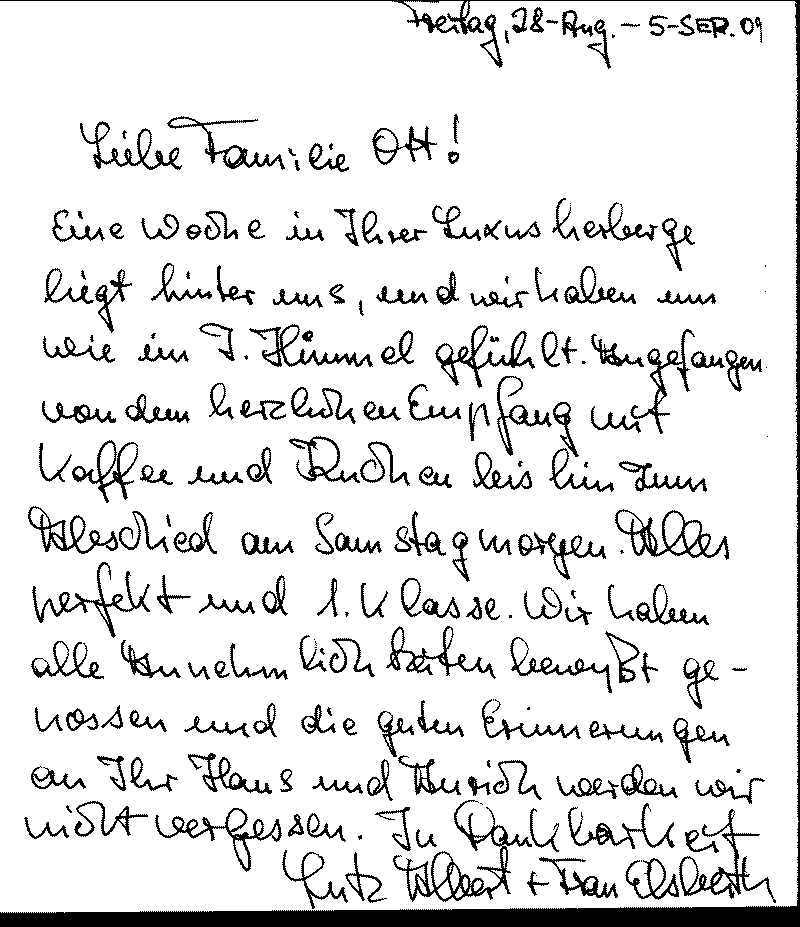 Freitag, 28-Aug. - 5-SEP. 09
Liebe Familie Ott!
Eine Woche in Ihrer Luxusherberge
liegt hinter uns, und wir haben uns
wie im 7. Himmel gefühlt. Angefangen
von dem herzlichen Empfang mit
Kaffee und Kuchen bis hin zum
Abschied am Samstagmorgen. Alles
perfekt und 1. Klasse. Wir haben
alle Annehmlichkeiten bewußt ge-
nossen und die guten Erinnerungen
an Ihr Haus und werden wir
nicht vergessen. In Dankbarkeit
Lutz Albert + Frau Elsbeth